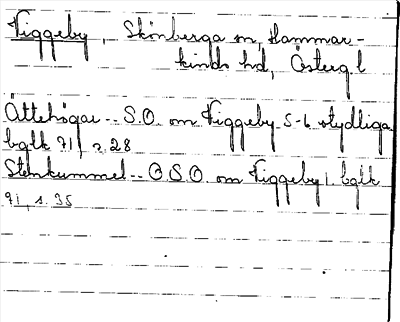 Viggeby, Skönberga sn, Hammar-
kinds hd, Österg l
Ättehögar -- S.O. om Viggeby 5-6 otydliga
bglk 71, s. 28
Stenkummel -- O.S.O. om Viggeby 1. bglk
71, s. 35